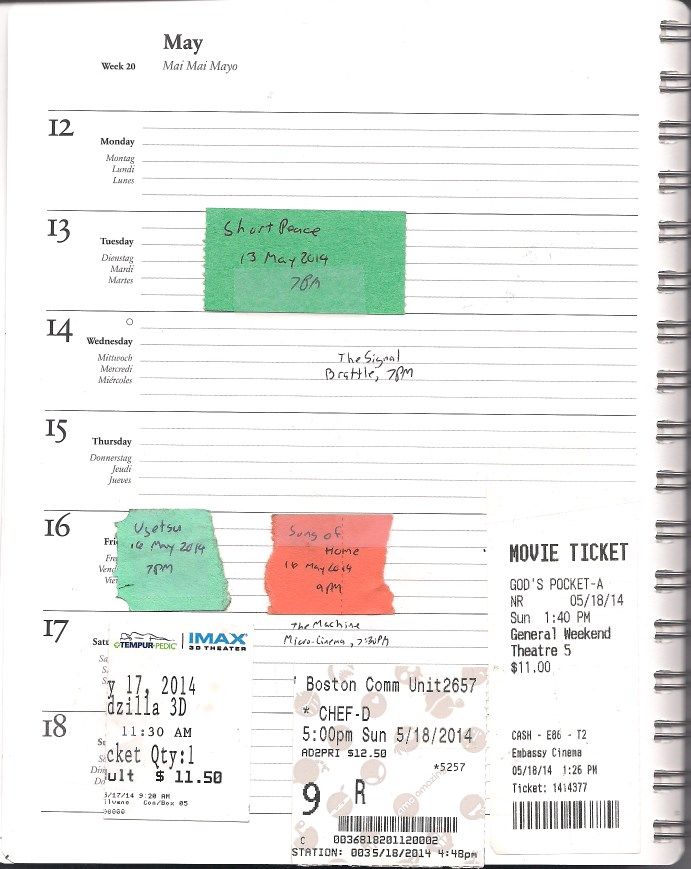 May
Week 20
Mai Mai Mayo
12
Monday
Montag
Lundi
Lunes
13
Tuesday
Dienstag
Mardi
Martes
Short Peace
13 May 2014
7PM
14
Wednesday
Mittwoch
Mercredi
Miércoles
The Signal
Brattle, 7PM
15
Thursday
Donnerstag
Jeudi
Jueves
16
Fri
Ugetsu
16 May 2014
7PM
Home
16 May 2014
9PM
17
Satu
The Machine
Micro-Cinema, 7:30PM
TEMPUR-PEDIC
IMAX
3D THEATER
y 17, 2014
dzilla 3D
11:30 AM
cket Qty:1
ult $ 11.50
5/17/14 9:20 AM
Con/Box 05
18
Boston Comm Unit2657
* CHEF-D
5:00pm Sun 5/18/2014
AD2PRI $12.50
*5257
9 R
C 0036818201120002
STATION: 0035/18/2014 4:48pm
MOVIE TICKET
GOD'S POCKET-A
NR 05/18/14
Sun 1:40 PM
General Weekend
Theatre 5
$11.00
CASH - E86 - T2
Embassy Cinema
05/18/14 1:26 PM
Ticket: 1414377